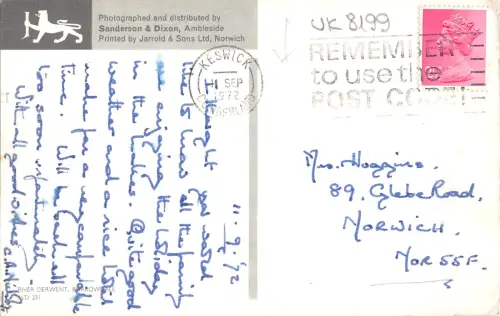 Photographed and distributed by
Sanderson & Dixon, Ambleside
Printed by Jarrold & Sons Ltd, Norwich
UK 8199
KESWICK
11 SEP
1972
CUMBERLAND
REMEMBER
to use the
POST CODE
11.9.72
I thought you would
like to know all the family
are enjoying the holiday
in the Lakes. Quite good
weather and a nice
made for a very comfortable
time. Will be back all
too soon unfortunately.
With all good wishes
Mrs. Huggins.
89, Glebe Road,
NORWICH.
NOR 55F.
RIVER DERWENT, BORROWDALE